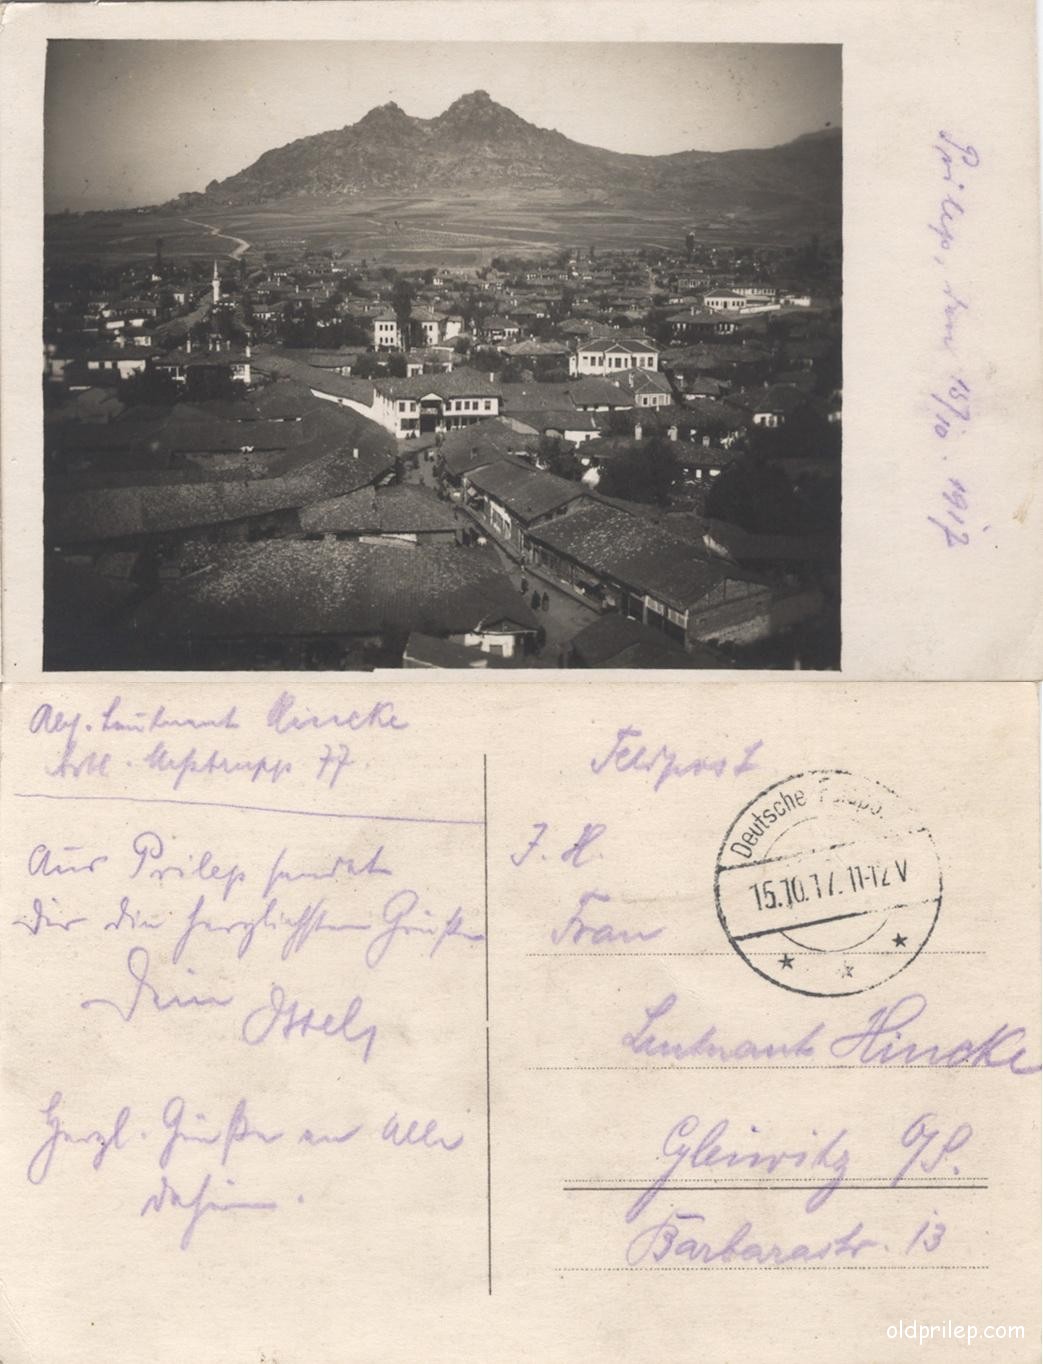 Prilep, den 15/10. 1917
Abs. Leutnant Hincke
Artl. Meßtrupp 77.
Aus Prilep sendet
Dir die herzlichsten Grüße
Dein
Herzl. Grüße an alle
daheim.
Feldpost
I. H.
Frau
Leutnant Hincke
Gleiwitz O/S.
Barbarastr. 13
Deutsche Feldpo
15.10.17. 11-12 V
oldprilep.com